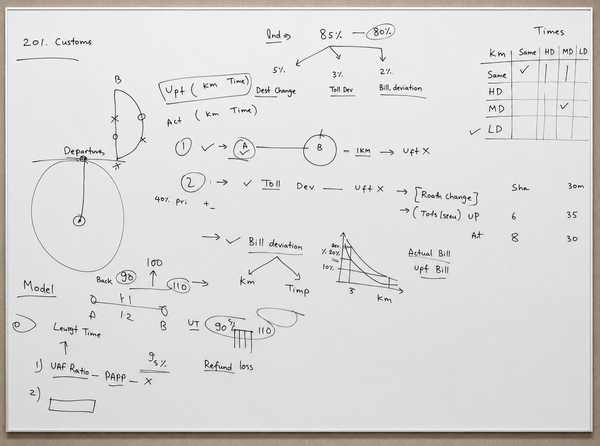 201. Customs
Ind ⇒ 85% — 80%
5% 3% 2%
Dest Change Toll Dev Bill. deviation
Upt ( Km Time)
Act ( Km Time)
Times
Km Same HD MD LD
Same ✓
HD
MD ✓
✓ LD
B
Departure
1 ✓ → A B - 1KM → Uft X
2 : → ✓ Toll Dev — Uft X → [Roath Change]
40% pri +_
→ (
UP
At
Sha 30m
6 35
8 30
→ ✓ Bill deviation
Km Timp
% 20%
10%
3 Km
Actual Bill
Upf Bill
Model
Back 90 100 110 →
A 1.2 B
UT 90 5% 110
Time
1) UAF Ratio - PAPP - X
95%
Refund loss
2)